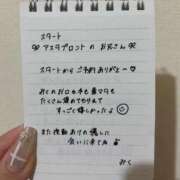 スタート
アスタプロント の お兄さん
スタートから ご予約 ありがとー♡
みくの お口の 手も 素マタも
たくさん 褒めてもらえて
すっごく 嬉しかったよ
また 後動 ありの 際した
会いに 来てね
みく